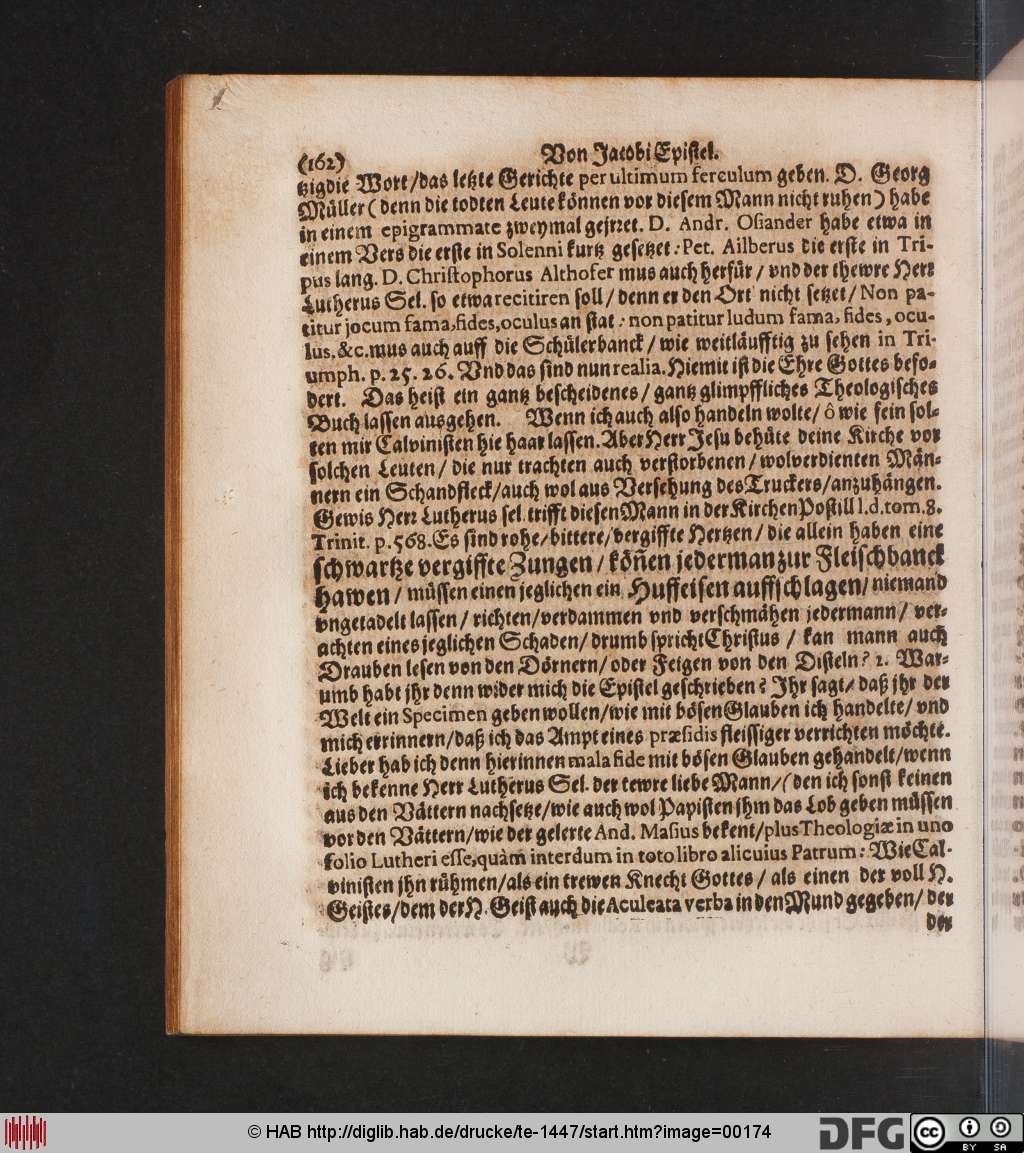 (162) Von Jacobi Epistel.
tzigdie Wort/das letzte Gerichte per ultimum ferculum geben. D. Georg
Müller (denn die todten Leute können vor diesem Mann nicht ruhen) habe
in einem epigrammate zweymal gejrret. D. Andr. Osiander habe etwa in
einem Vers die erste in Solenni kurtz gesetzet: Pet. Ailberus die erste in Tri-
pus lang. D. Christophorus Althofer mus auch herfür / vnd der thewre Herr
Lutherus Sel. so etwa recitiren soll / denn er den Ort nicht setzet/ Non pa-
titur jocum fama, fides, oculus an stat: non patitur ludum fama, fides, ocu-
lus, &c. mus auch auff die Schülerbanck / wie weitläufftig zu sehen in Tri-
umph. p. 25. 26. Vnd das sind nun realia. Hiemit ist die Ehre Gottes befo-
dert. Das heist ein gantz bescheidenes / gantz glimpffliches Theologisches
Buch lassen ausgehen. Wenn ich auch also handeln wolte/ ô wie fein sol-
ten mir Calvinisten hie haar lassen. Aber Herr Jesu behüte deine Kirche vor
solchen Leuten / die nur trachten auch verstorbenen / wolverdienten Män-
nern ein Schandfleck/auch wol aus Versehung des Truckers/anzuhängen.
Gewis Herr Lutherus sel. trifft diesen Mann in der KirchenPostill l.d. tom. 8.
Trinit. p. 568. Es sind rohe/bittere/vergiffte Hertzen / die allein haben eine
schwartze vergiffte Zungen / köñen jederman zur Fleischbanck
hawen / müssen einen jeglichen ein Huffeisen auffschlagen/ niemand
vngetadelt lassen / richten/verdammen vnd verschmähen jedermann/ ver-
achten eines jeglichen Schaden/ drumb spricht Christus / kan mann auch
Drauben lesen von den Dörnern/ oder Feigen von den Disteln? 2. War-
umb habt jhr denn wider mich die Epistel geschrieben? Ihr sagt/ daß jhr der
Welt ein Specimen geben wollen/wie mit bösen Glauben ich handelte/ vnd
mich errinnern/daß ich das Ampt eines præsidis fleissiger verrichten möchte.
Lieber hab ich denn hierinnen mala fide mit bösen Glauben gehandelt/wenn
ich bekenne Herr Lutherus Sel. der tewre liebe Mann/(den ich sonst keinen
aus den Vättern nachsetze/wie auch wol Papisten jhm das Lob geben müssen
vor den Vättern/wie der gelerte And. Masius bekent/plus Theologiæ in uno
folio Lutheri esse, quàm interdum in toto libro alicuius Patrum: Wie Cal-
vinisten jhn rühmen/als ein trewen Knecht Gottes / als einen der voll H.
Geistes/dem der H. Geist auch die Aculeata verba in den Mund gegeben/ der
der
© HAB http://diglib.hab.de/drucke/te-1447/start.htm?image=00174
DFG
cc
BY SA